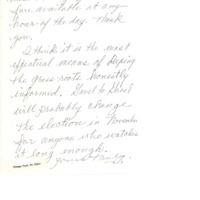 fine available at any
hour of the day. Thank
you.
I think it is the most
effectual means of keeping
the grass roots honestly
informed. Gavel to Gavel
will probably change
the election in November
for anyone who watches
it long enough.
Yours